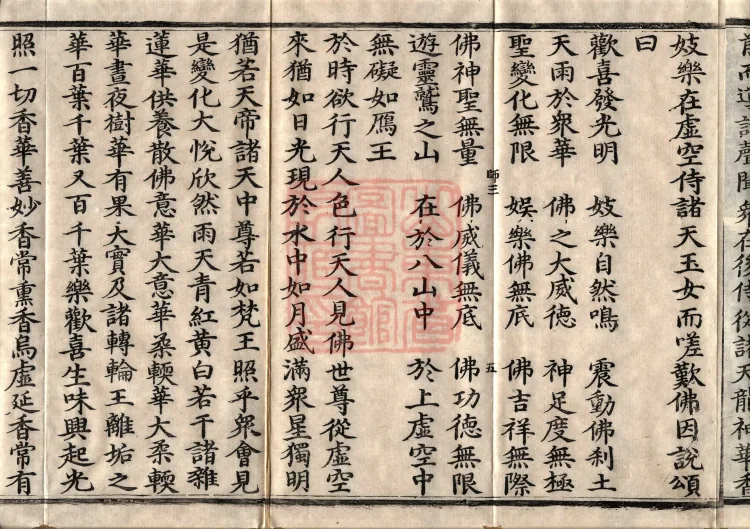 妓樂在虛空侍諸天玉女而嗟歎佛因說頌
曰
歡喜發光明 妓樂自然鳴 震動佛刹土
天雨於衆華 佛之大威德 神足度無極
聖變化無限 娛樂佛無底 佛吉祥無際
師三 五
佛神聖無量 佛威儀無底 佛功德無限
遊靈鷲之山 在於八山中 於上虛空中
無礙如鴈王
於時欲行天人色行天人見佛世尊從虛空
來猶如日光現於水中如月盛滿衆星獨明
猶若天帝諸天中尊若如梵王照乎衆會見
是變化大悅欣然雨天青紅黃白若干諸雜
蓮華供養散佛意華大意華柔輭華大柔輭
華晝夜樹華有果大實及諸轉輪王離垢之
華百葉千葉又百千葉樂歡喜生味興起光
照一切香華善妙香常熏香烏虛延香常有